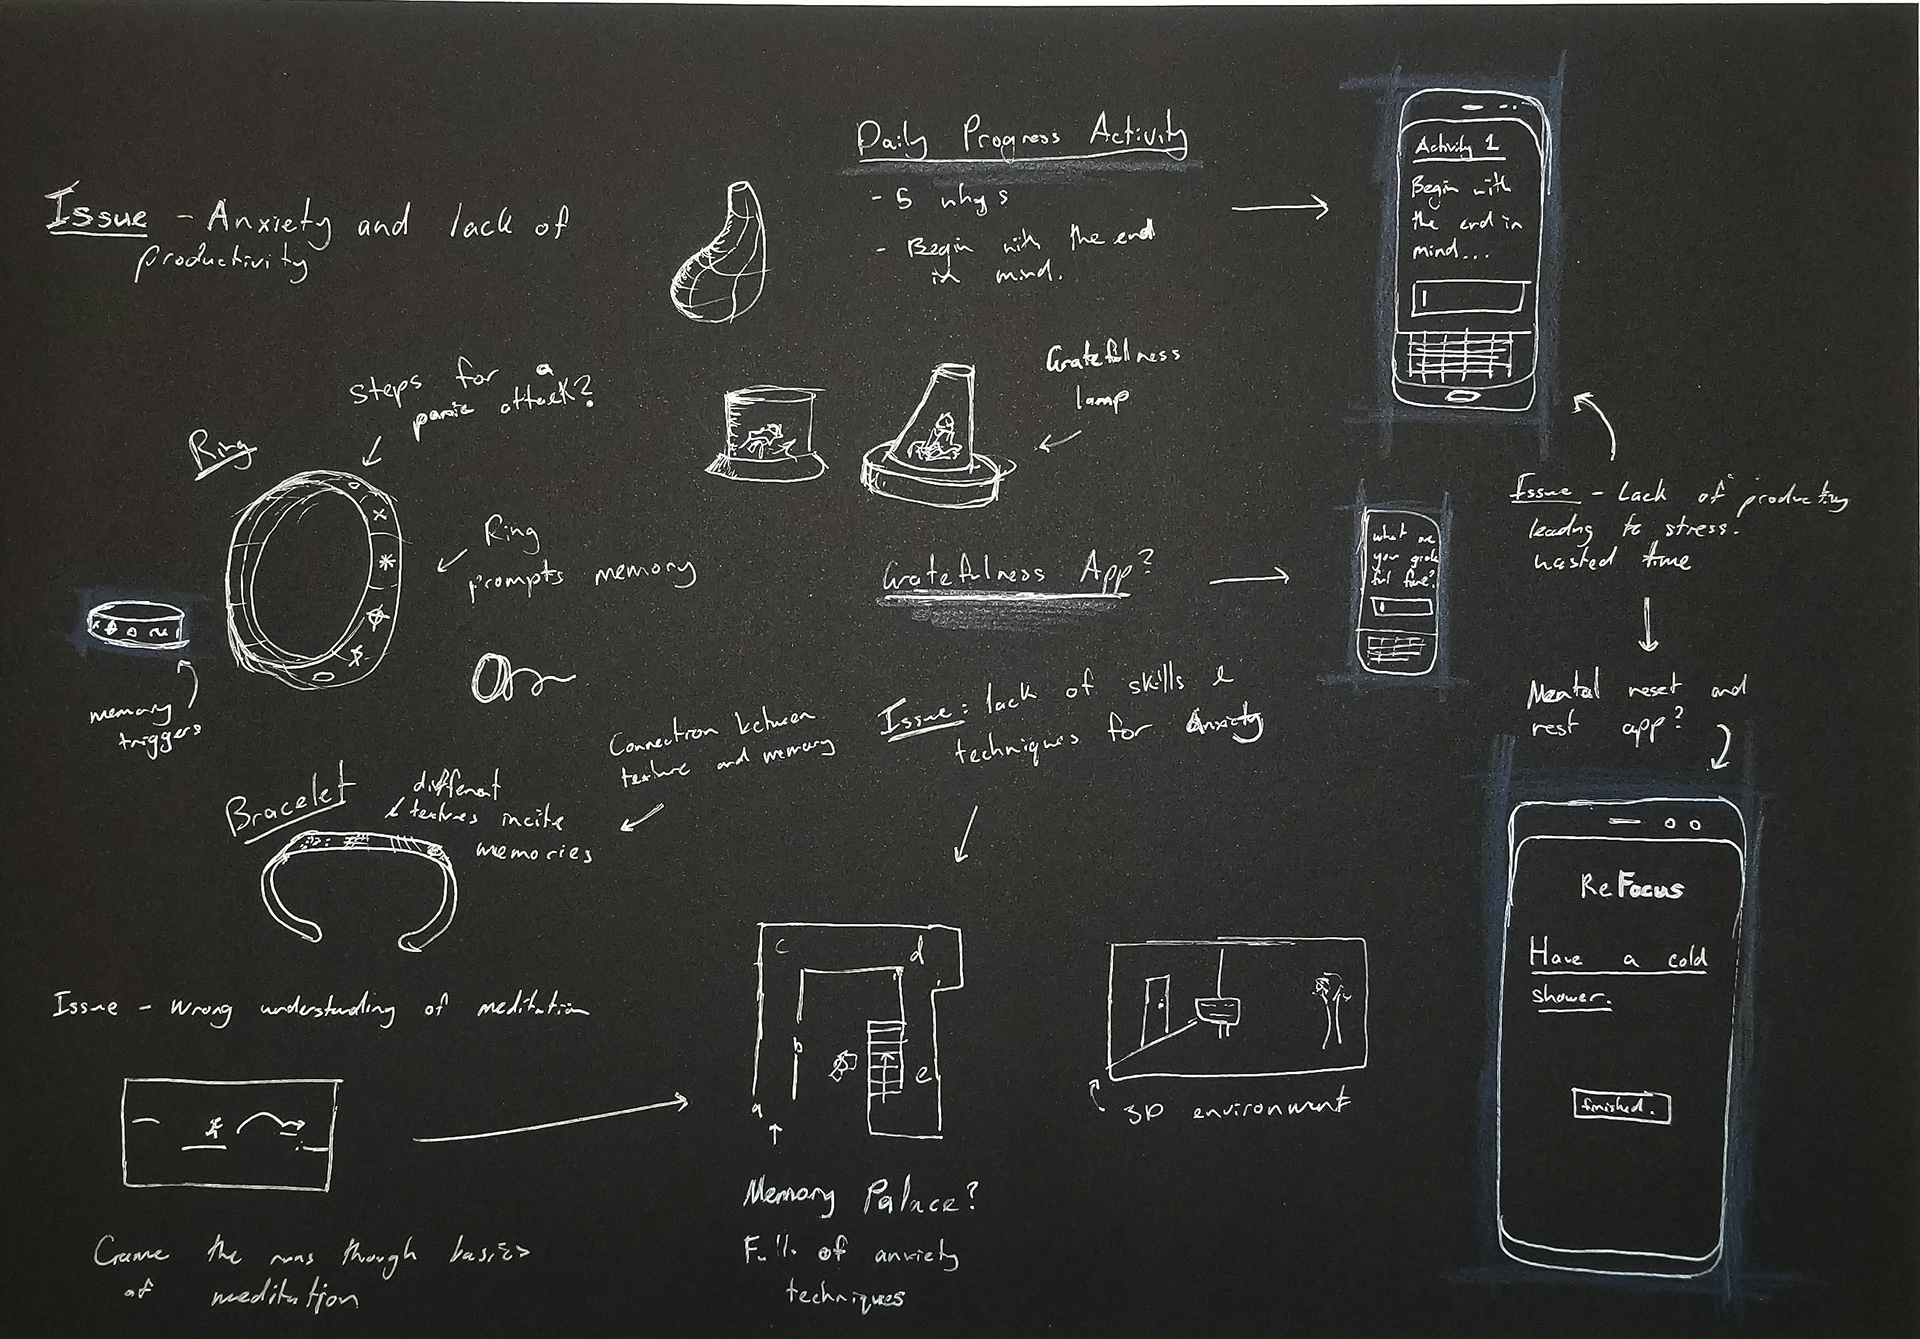 Issue - Anxiety and lack of
productivity
Daily Progress Activity
- 5 whys
- Begin with the end
in mind.
Activity 1
Begin with
the end in
mind...
Steps for a
panic attack?
Ring
Ring
prompts memory
memory
triggers
Gratefulness
lamp
Gratefulness App?
what are
you grate
ful for?
Issue - Lack of productivy
leading to stress.
wasted time
Mental reset and
rest app?
ReFocus
Have a cold
shower.
finished.
Connection between
texture and memory
Bracelet
different
textures incite
memories
Issue: lack of skills &
techniques for Anxiety
Issue - Wrong understanding of meditation
Game the runs though basics
of meditation
c
d
b
e
a
Memory Palace?
Full of anxiety
techniques
3D environment